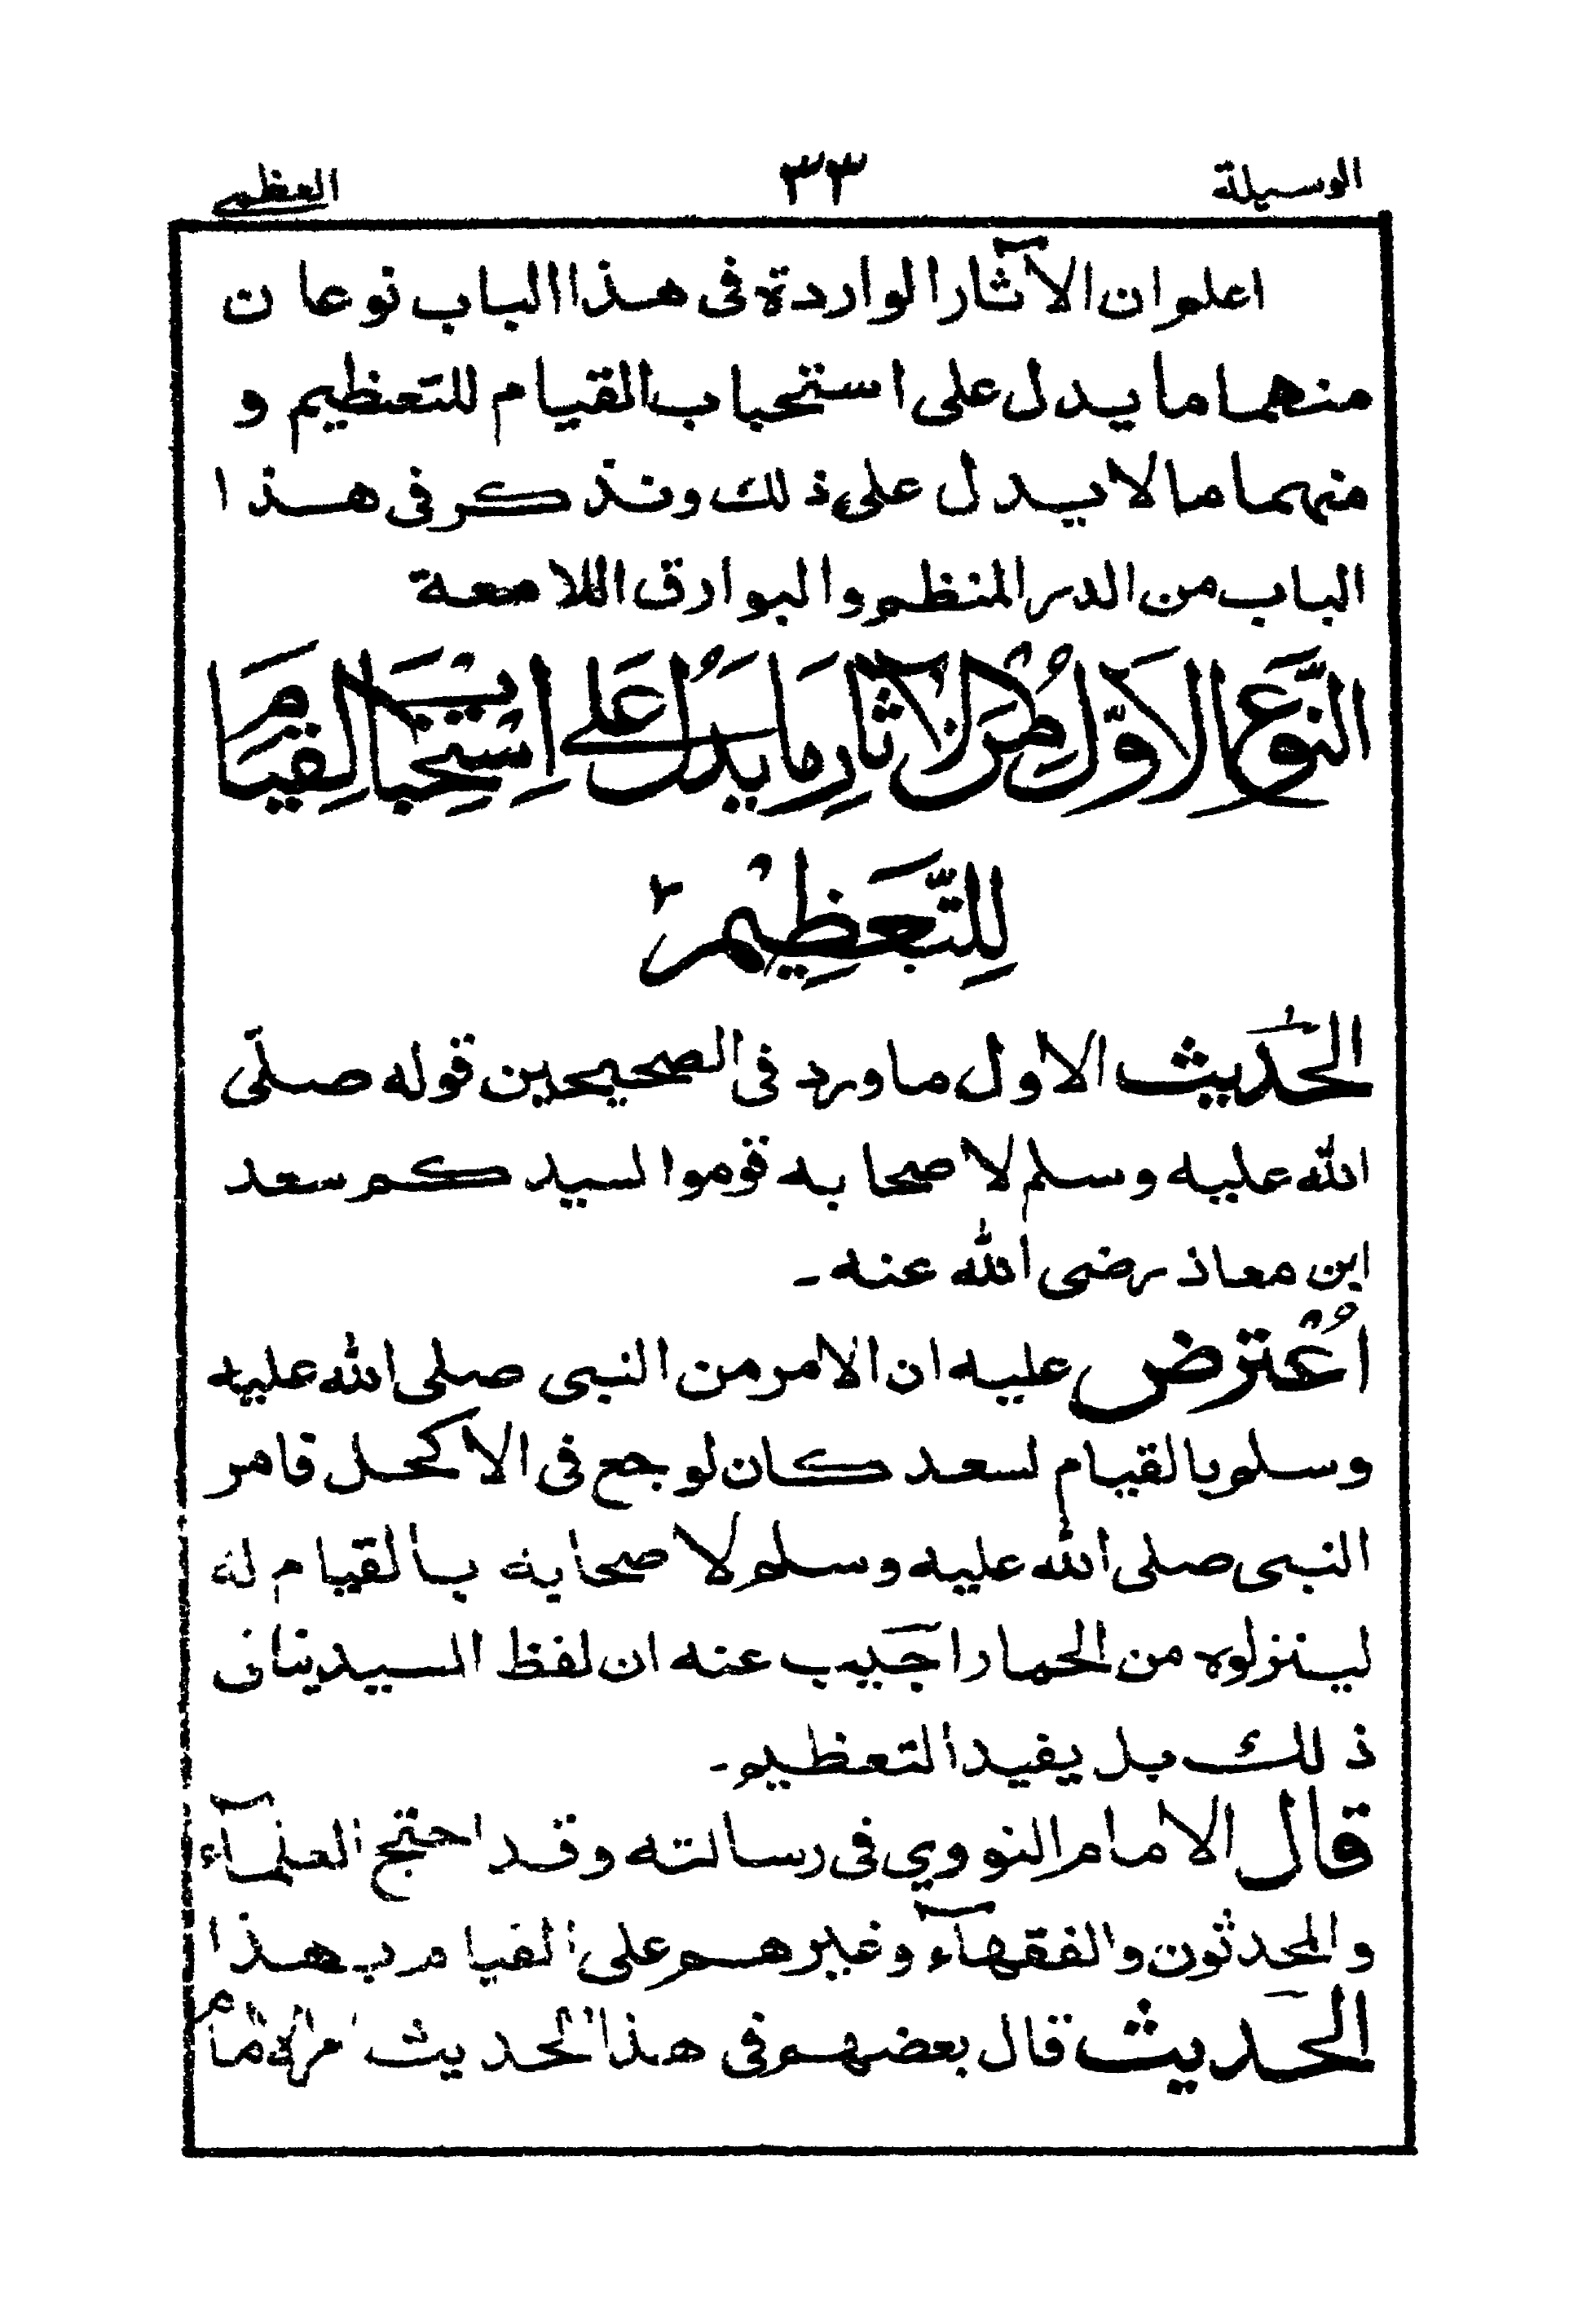 الوسيلة ٣٣ العظمى
اعلم ان الآثار الواردة فى هذا الباب نوعان
منهما ما يدل على استحباب القيام للتعظيم و
منهما ما لا يدل على ذلك ونذكر فى هذا
الباب من الدر المنظم والبوارق اللامعة
النَّوعُ الاَوَّلُ مِنَ الآثارِ مَا يَدُلُّ عَلى اِسْتِحْبَابِ القِيَامِ
لِلتَّعَظِيْمِ
الحَدِيث الاول ما ورد فى الصحيحين قوله صلّى
الله عليه وسلم لاصحابه قوموا لسيدكم سعد
ابن معاذ رضى الله عنه ۔
اُعْترض عليه ان الامر من النبى صلى الله عليه
وسلم بالقيام لسعد كان لوجع فى الاكحل فامر
النبى صلى الله عليه وسلم لاصحابه بالقيام له
لينزلوه من الحمار اجَيب عنه ان لفظ السيد ينافى
ذلك بل يفيد التعظيم ۔
قال الامام النووي فى رسالته وقد احتج العلمآء
والمحدثون والفقهآء وغيرهم على القيام بهذا
الحَديث قال بعضهم فى هذا الحديث امر الامام